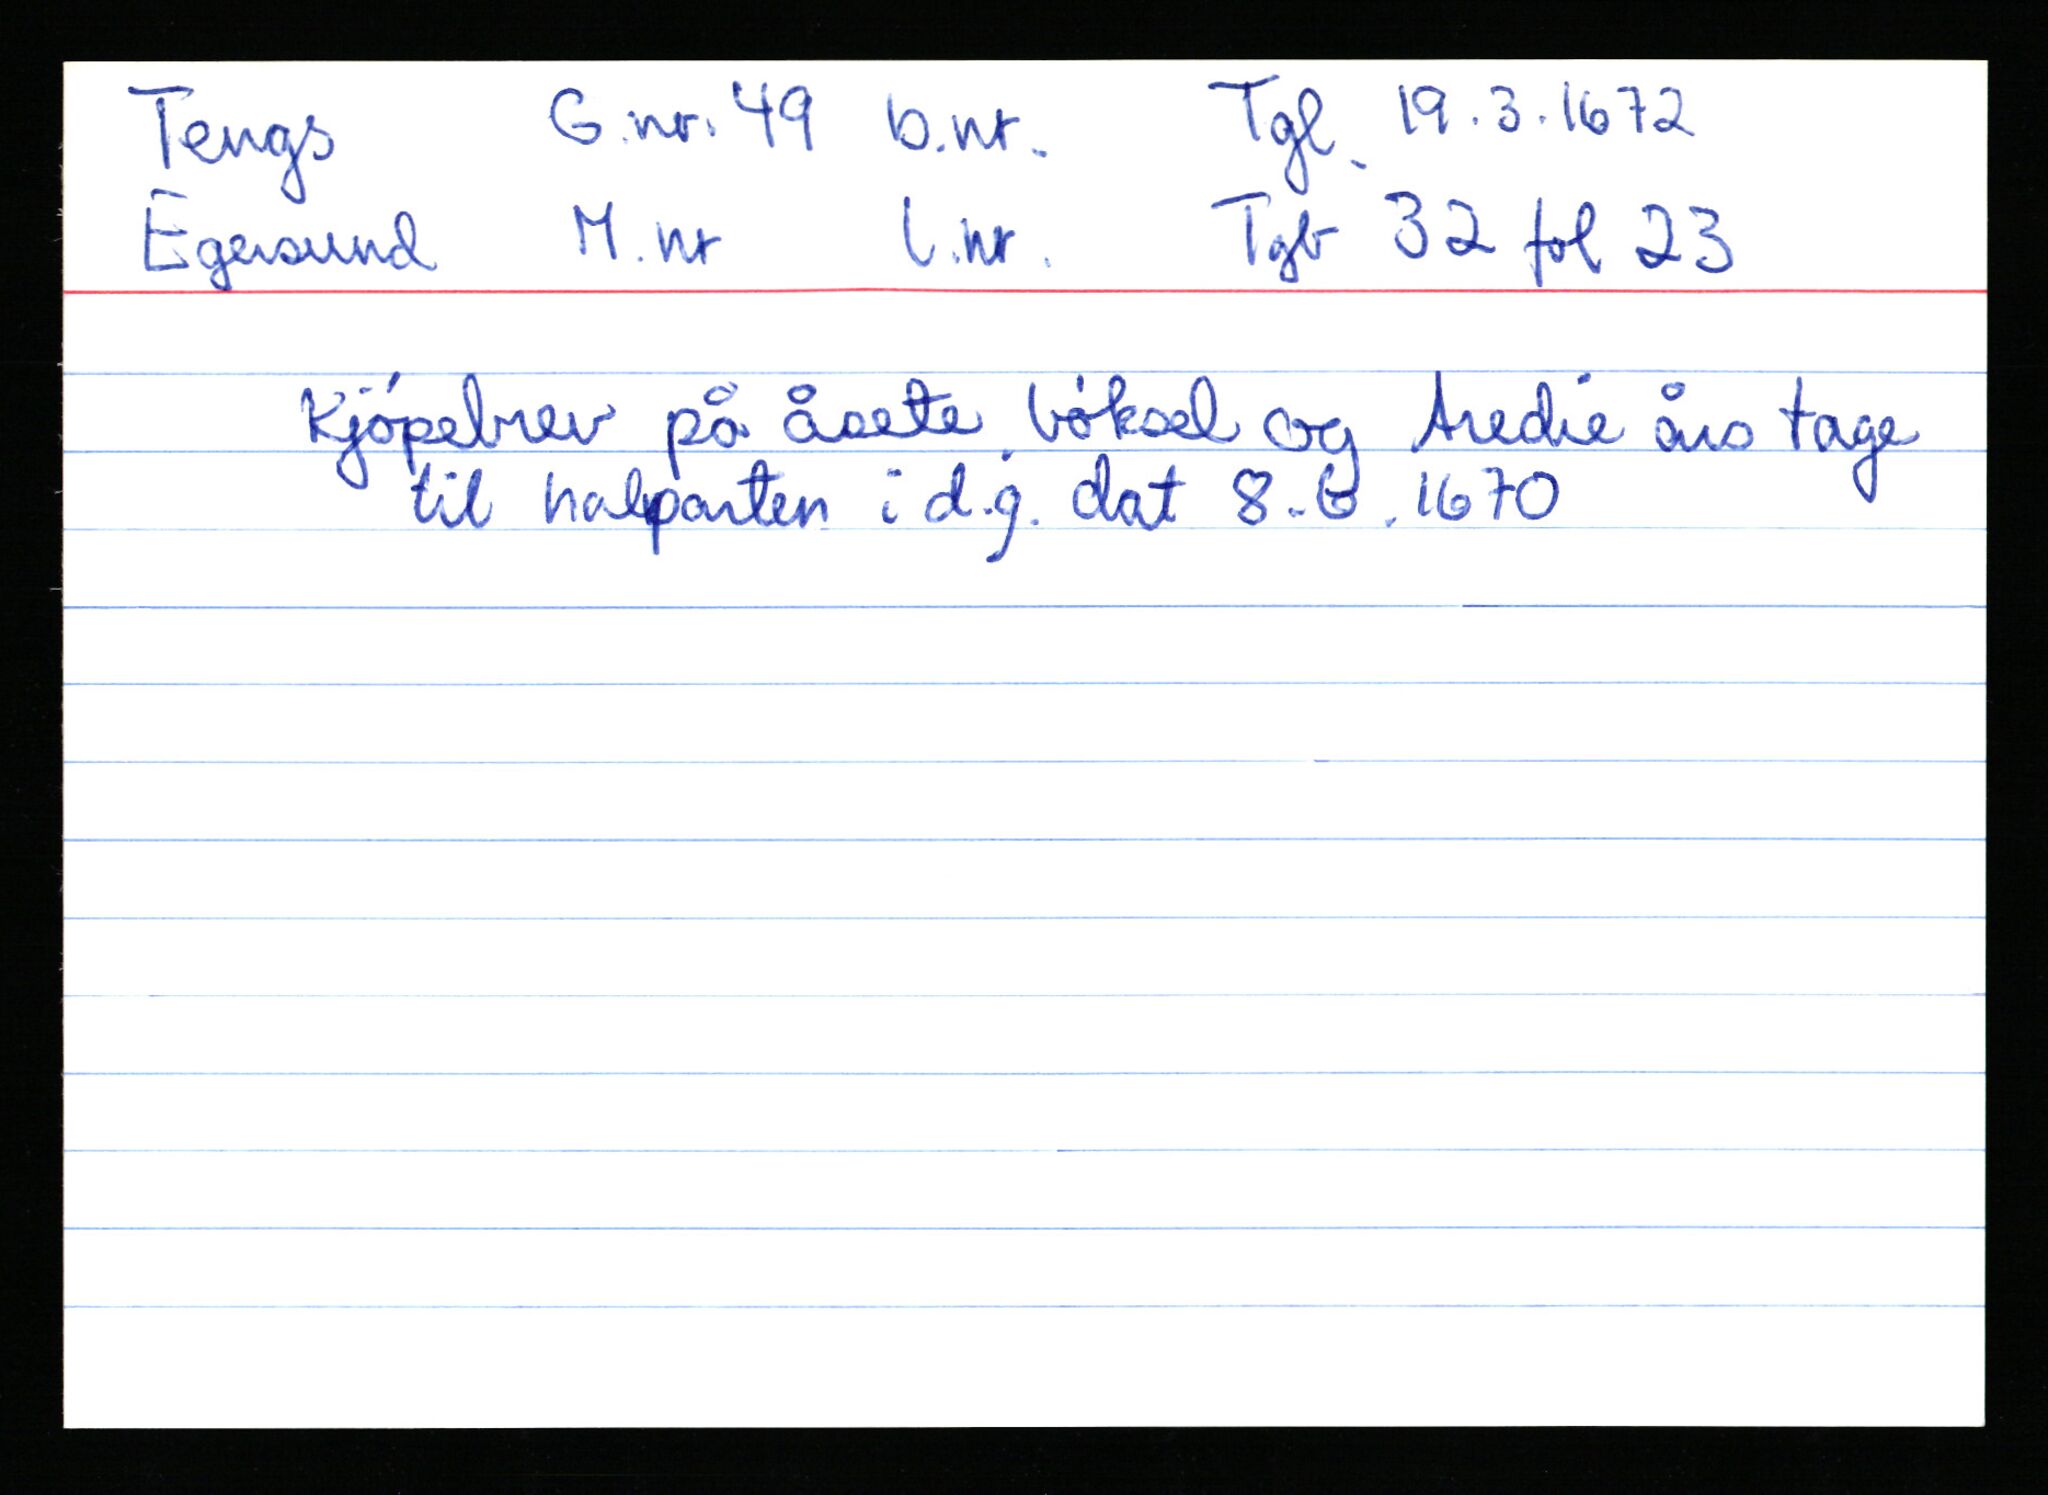 Tengs G.nr. 49 b.nr. Tgl. 19.3.1672
Egersund M.nr l.nr. Tgb 32 fol 23
Kjópebrev på åsete, bóksel og tredie års tage
til halparten i d.g. dat 8.6.1670